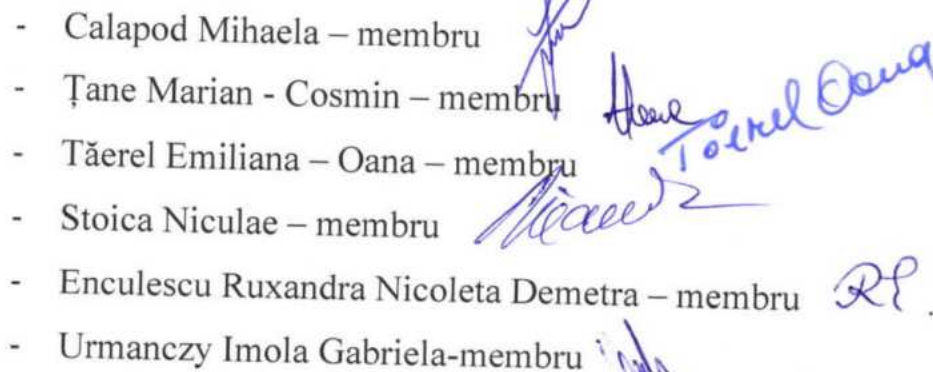 - Calapod Mihaela – membru
- Țane Marian - Cosmin – membru
- Tăerel Emiliana – Oana – membru
Tăerel Oana
- Stoica Niculae – membru
- Enculescu Ruxandra Nicoleta Demetra – membru
- Urmanczy Imola Gabriela-membru